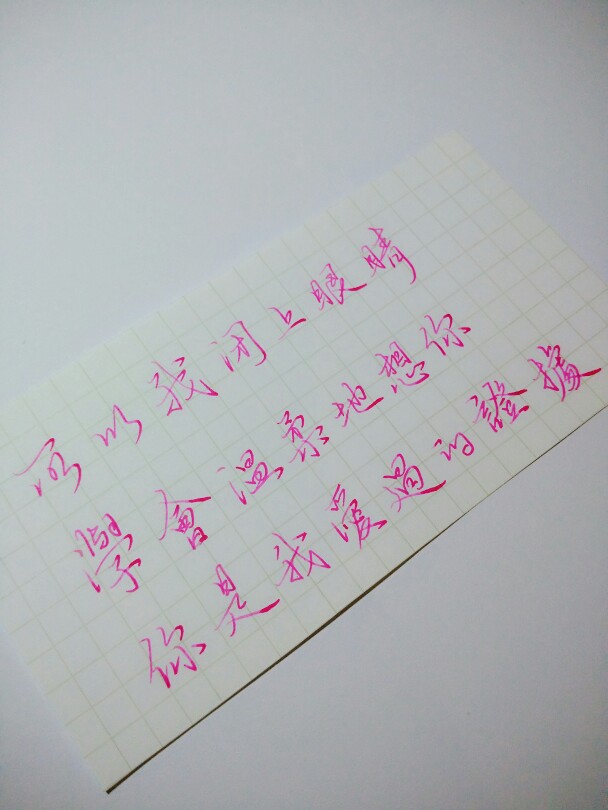 所以我閉上眼睛
學會溫柔地想你
你是我愛過的證據